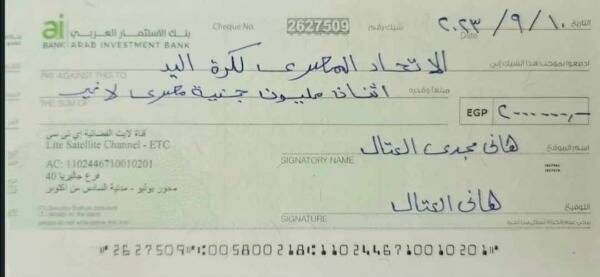 ai بنك الاستثمار العربي
BANK ARAB INVESTMENT BANK
Cheque No. 2627509 شيك رقم
Date ٢٠٢٣/٩/١٠ التاريخ
ادفعوا بموجب هذا الشيك إلى الاتحاد المصرى لكرة اليد
PAY AGAINST THIS TO
مبلغاً وقدره اثنان مليون جنية مصرى لا غير
THE SUM OF
EGP ٢٠٠٠٠٠٠,-
قناة لايت الفضائية اي تي سي
Lite Satellite Channel - ETC
AC: 1102446710010201
فرع جاليريا 40
محور يوليو - مدينة السادس من اكتوبر
SIGNATORY NAME هانى مجدى العتال اسم الموقع
SIGNATURE هانى العتال التوقيع
⑈2627509⑈⑆005800218⑆1102446710010201⑈